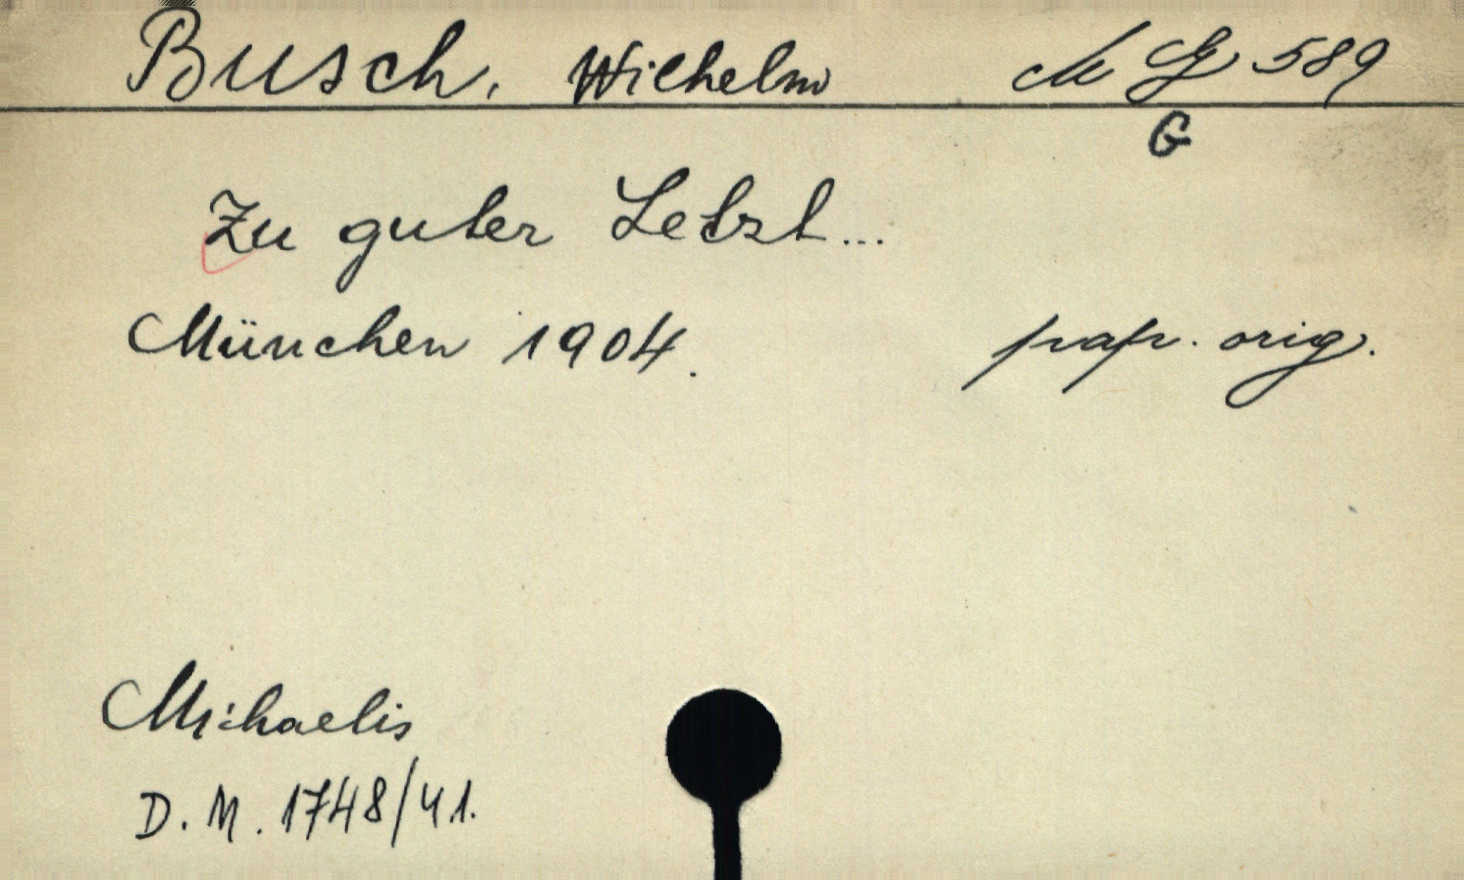 Busch, Wilhelm M G 589
G
Zu guter Letzt...
München 1904. pap. orig.
Michaelis
D. M. 1748/41.